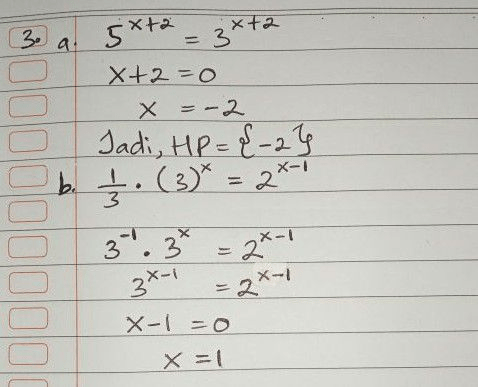 3. a. 5^{x+2} = 3^{x+2}
x+2 = 0
x = -2
Jadi, HP = {-2}
b. \frac{1}{3} . (3)^x = 2^{x-1}
3^{-1} . 3^x = 2^{x-1}
3^{x-1} = 2^{x-1}
x-1 = 0
x = 1